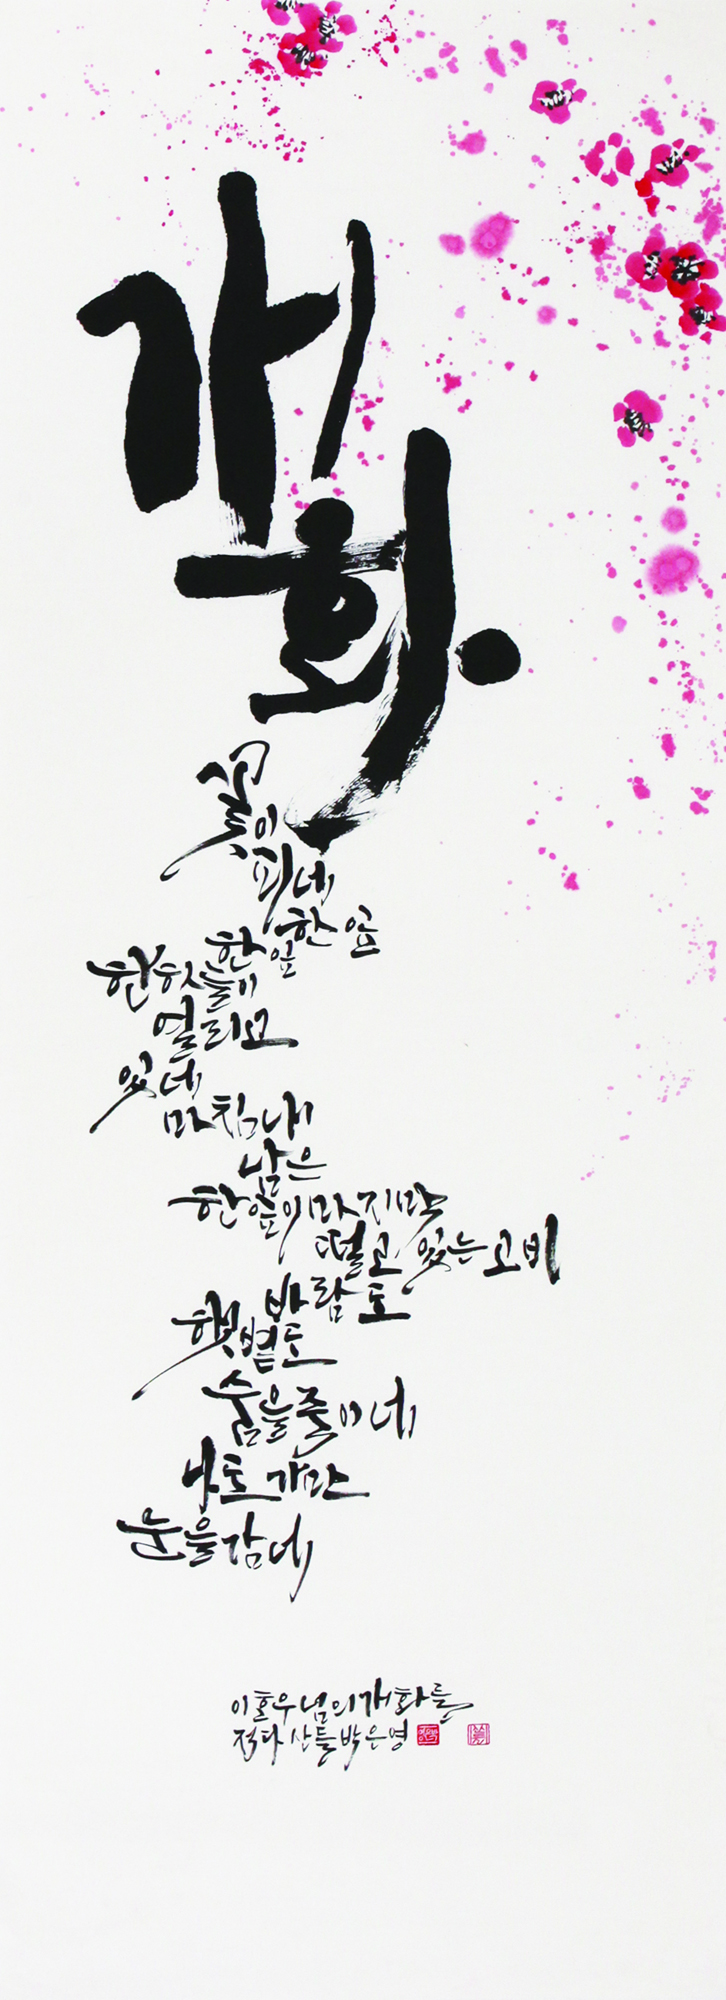 개화
꽃이
피네
한 잎 한 잎
한 하늘이
열리고
있네
마침내
남은
한 잎이 마지막
떨고 있는 고비
바람도
햇볕도
숨을 죽이네
나도 가만
눈을 감네
이호우님의 개화를
적다 산들 박은영